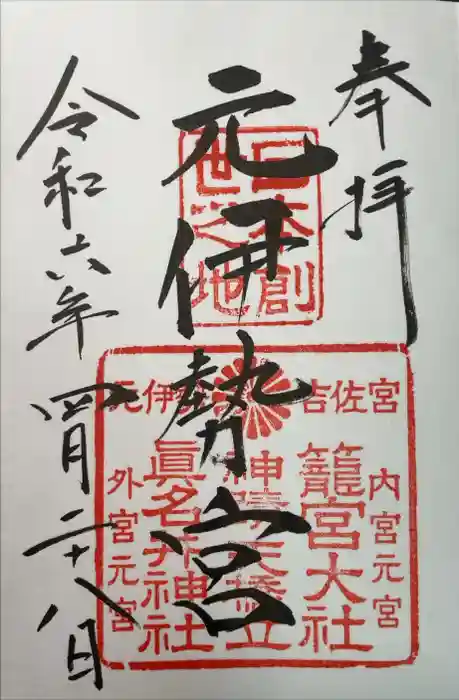 奉拝
日本創
世之地
元伊勢宮
吉佐宮
元伊勢
内宮元宮
籠宮大社
神勝天橋立
眞名井神社
外宮元宮
令和六年四月二十八日